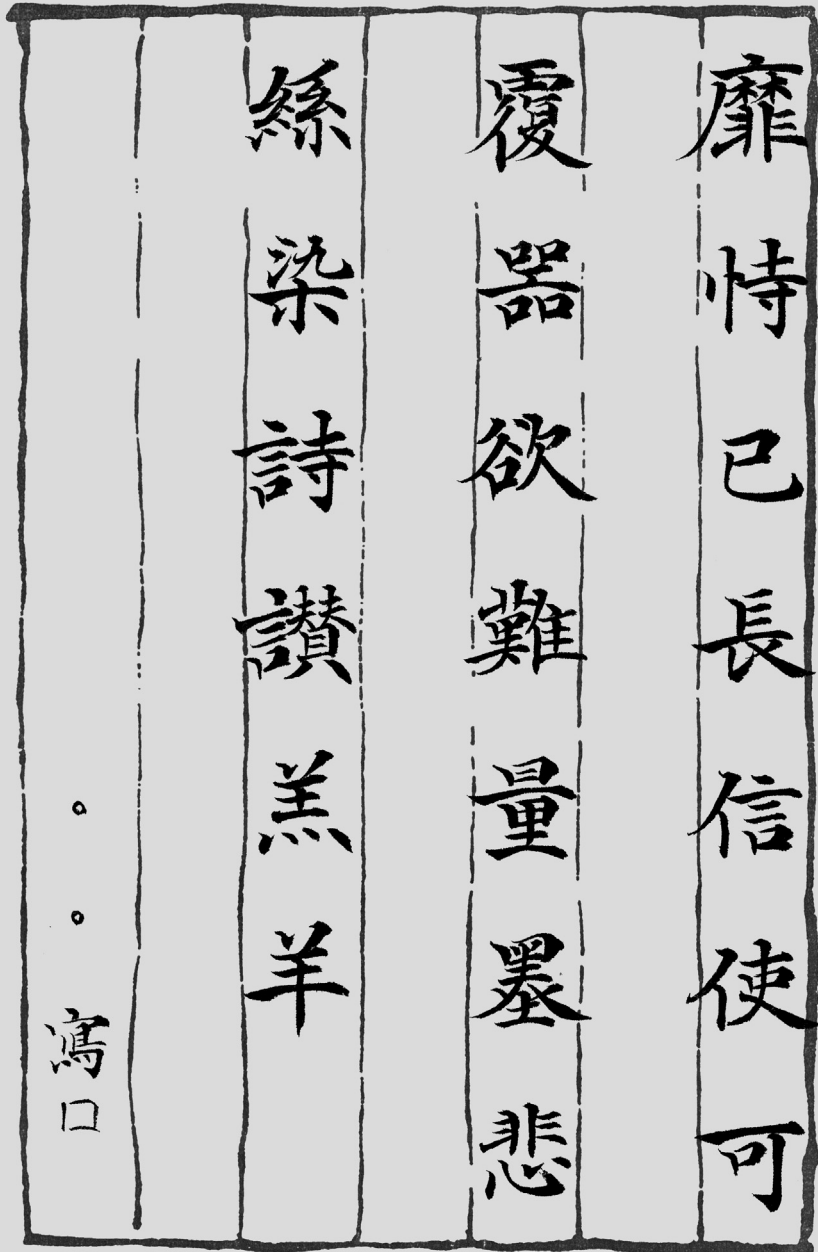 靡恃已長信使可
覆器欲難量墨悲
絲染詩讃羔羊
。。寫口